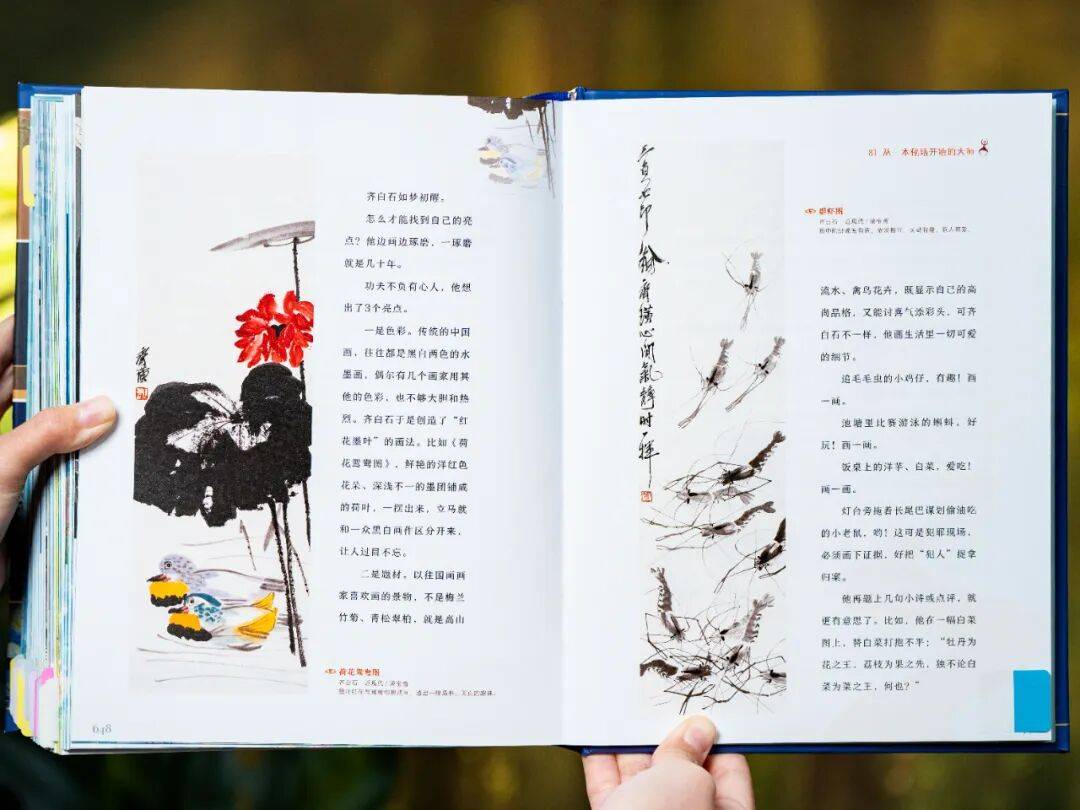 齐白石如梦初醒。
怎么才能找到自己的亮
点？他边画边琢磨，一琢磨
就是几十年。
功夫不负有心人，他想
出了3个亮点。
一是色彩。传统的中国
画，往往都是黑白两色的水
墨画，偶尔有几个画家用其
他的色彩，也不够大胆和热
烈。齐白石于是创造了“红
花墨叶”的画法。比如《荷
花鸳鸯图》，鲜艳的洋红色
花朵、深浅不一的墨团铺成
的荷叶，一摆出来，立马就
和一众黑白画作区分开来，
让人过目不忘。
二是题材。以往国画画
家喜欢画的景物，不是梅兰
竹菊、青松翠柏，就是高山
荷花鸳鸯图
齐白石 近现代
648
81 从一本秘笈开始的大师
群虾图
齐白石 近现代
流水、禽鸟花卉，既显示自己的高
尚品格，又能讨喜气添彩头，可齐
白石不一样，他画生活里一切可爱
的细节。
追毛毛虫的小鸡仔，有趣！画
一画。
池塘里比赛游泳的蝌蚪，好
玩！画一画。
饭桌上的洋芋、白菜，爱吃！
画一画。
灯台旁拖着长尾巴谋划偷油吃
的小老鼠，哟！这可是犯罪现场，
必须画下证据，好把“犯人”捉拿
归案。
他再题上几句小诗或点评，就
更有意思了。比如，他在一幅白菜
图上，替白菜打抱不平：“牡丹为
花之王，荔枝为果之先，独不论白
菜为菜之王，何也？”